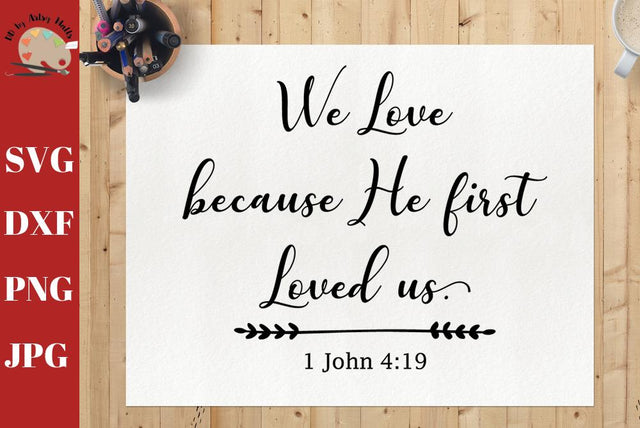 DD by Artsy Matts
SVG
DXF
PNG
JPG
We Love
because He first
Loved us.
1 John 4:19